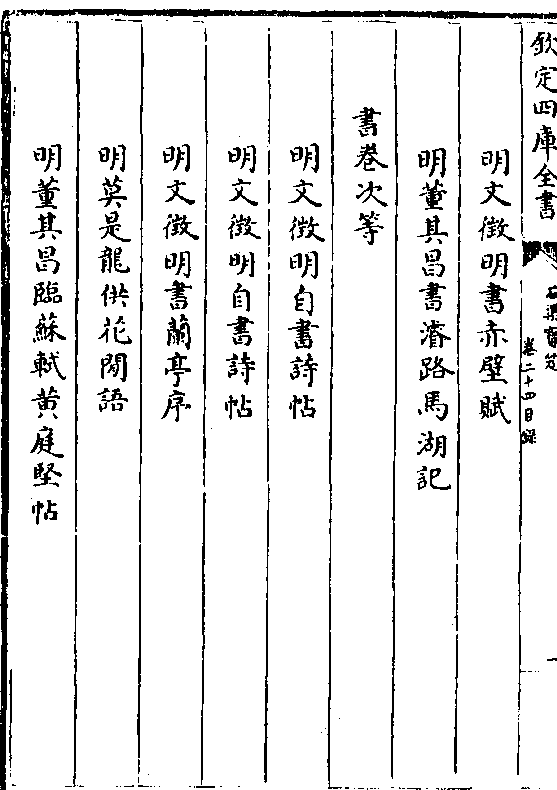 欽定四庫全書
石渠寶笈
卷二十四目錄
一
明文徵明書赤壁賦
明董其昌書濬路馬湖記
書卷次等
明文徵明自書詩帖
明文徵明自書詩帖
明文徵明書蘭亭序
明莫是龍供花閣語
明董其昌臨蘇軾黃庭堅帖